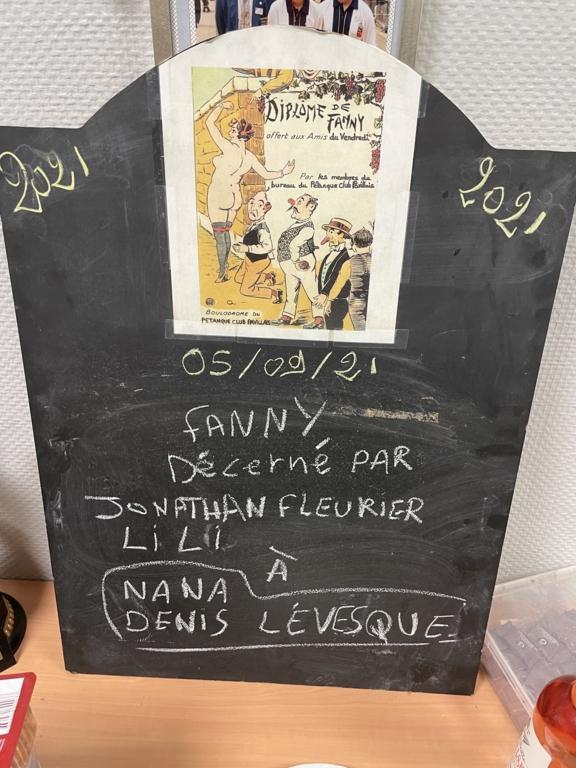 DIPLÔME DE
FANNY
offert aux Amis du Vendredi
Par les membres du
bureau du Pétanque Club Pavillais
BOULODROME DU
PETANQUE CLUB PAVILLAIS
2021
2021
05/09/21
FANNY
Décerné PAR
JONATHAN FLEURIER
LiLi
À
NANA
DENIS LÉVESQUE